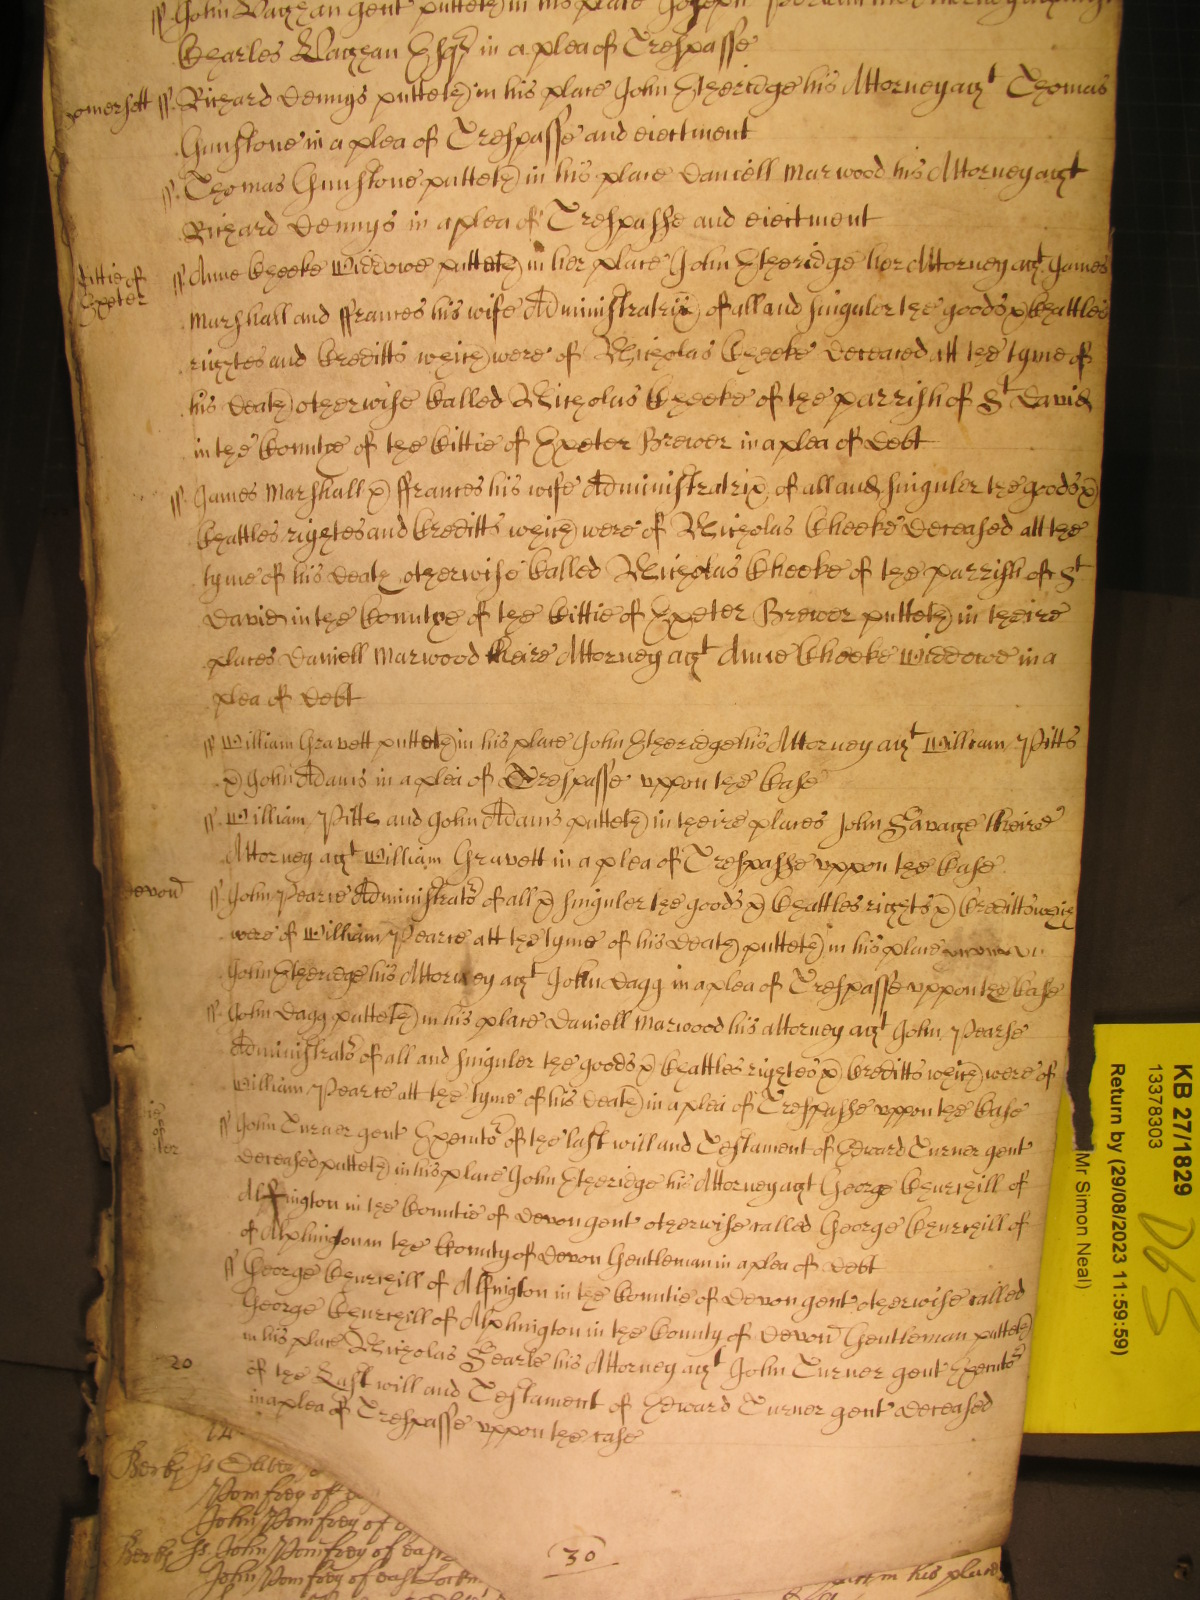 ss. John Vaghan gent putteth in his place Joseph
Charles Vaghan Esqr in a plea of Trespasse
Somersett ss. Richard Dennys putteth in his place John Etheridge his Attorney agt Thomas
Gunstone in a plea of Trespasse and eiectment
ss. Thomas Gunstone putteth in his place Daniell Marwood his Attorney agt
Richard Dennys in a plea of Trespasse and eiectment
Cittie of Exeter ss. Anne Cheeke Widdowe putteth in her place John Etheridge her Attorney agt James
Marshall and ffrances his wife Administratrix of all and singuler the goods & Chattles
rightes and Creditts which were of Nicholas Cheeke deceased att the tyme of
his death otherwise Called Nicholas Cheeke of the parrish of St David
in the Countie of the Cittie of Exeter Brewer in a plea of debt
ss. James Marshall & ffrances his wife Administratrix of all and singuler the goods &
Chattles rightes and Creditts which were of Nicholas Cheeke deceased att the
tyme of his death otherwise Called Nicholas Cheeke of the parrish of St
David in the Countye of the Cittie of Exeter Brewer putteth in theire
places Daniell Marwood theire Attorney agt Anne Cheeke Widdowe in a
plea of debt
ss. William Gravett putteth in his place John Etheridge his Attorney agt William Pitts
& John Adams in a plea of Trespasse uppon the Case
ss. William Pitts and John Adams putteth in theire places John Savage theire
Attorney agt William Gravett in a plea of Trespasse uppon the Case
Devon ss. John Pearse Administrator of all & singuler the goods & Chattles rights & Creditts which
were of William Pearce att the tyme of his death putteth in his place
John Etheridge his Attorney agt John Dagg in a plea of Trespasse uppon the Case
ss. John Dagg putteth in his place Daniell Marwood his attorney agt John Pearse
Administrator of all and singuler the goods & Chattles rightes & Creditts which were of
William Pearce att the tyme of his death in a plea of Trespasse uppon the Case
ss. John Turner gent Executor of the last will and Testament of Edward Turner gent
deceased putteth in his place John Etheridge his Attorney agt George Churchill of
Alfington in the Countie of Devon gent otherwise called George Churchill of
of Alphington in the County of Devon Gentleman in a plea of debt
ss. George Churchill of Alfington in the Countie of Devon gent otherwise called
George Churchill of Alphington in the County of Devon Gentleman putteth
in his place Nicholas Searle his Attorney agt John Turner gent Executor
20 of the Last will and Testament of Edward Turner gent deceased
in a plea of Trespasse uppon the case
Berks ss
Pomfrey of
John Pomfrey of
Berks ss. John Pomfrey of East
John Pomfrey of East
30
in his place
KB 27/1829
13378303
Return by (29/08/2023 11:59:59)
Mr Simon Neal)
D6S